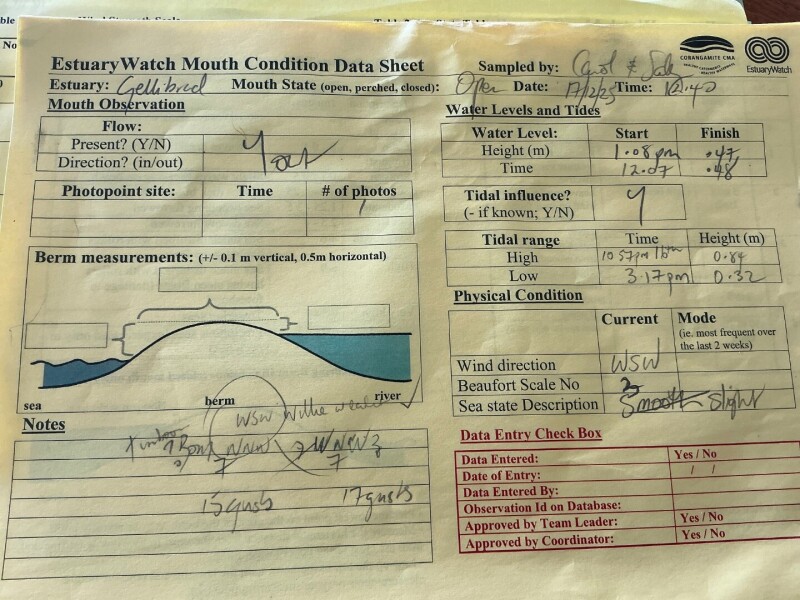 No
EstuaryWatch Mouth Condition Data Sheet
Sampled by: Carol &
CORANGAMITE CMA
EstuaryWatch
Estuary: Gellibrand Mouth State (open, perched, closed): Open Date: 17/2/25 Time: 12.40
Mouth Observation
Flow:
Present? (Y/N) Y
Direction? (in/out) out
Photopoint site: Time # of photos
1
Berm measurements: (+/- 0.1 m vertical, 0.5m horizontal)
sea berm river
Water Levels and Tides
Water Level: Start Finish
Height (m) 1.08pm .47
Time 12.07 .48
Tidal influence? Y
(- if known; Y/N)
Tidal range Time Height (m)
High 10 57pm 0.84
Low 3.17pm 0.32
Physical Condition
Current Mode
(ie. most frequent over
the last 2 weeks)
Wind direction WSW
Beaufort Scale No
Sea state Description Smooth slight
Notes
WSW Willie
NNW
7 7
15 gusts 17 gusts
Data Entry Check Box
Data Entered: Yes / No
Date of Entry: / /
Data Entered By:
Observation Id on Database:
Approved by Team Leader: Yes / No
Approved by Coordinator: Yes / No